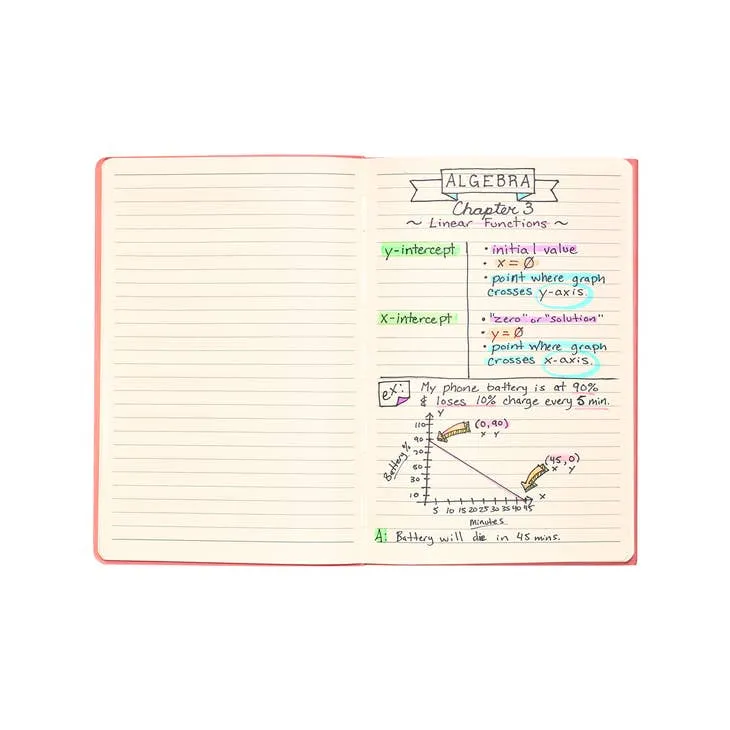 ALGEBRA
Chapter 3
~ Linear Functions ~
y-intercept
• initial value
• x = Ø
• point where graph
crosses y-axis.
x-intercept
• "zero" or "solution"
• y = Ø
• point where graph
crosses x-axis.
ex:
My phone battery is at 90%
& loses 10% charge every 5 min.
Y
110
90
70
50
30
10
Battery %
(0, 90)
x y
(45, 0)
x y
x
5 10 15 20 25 30 35 40 45
minutes
A: Battery will die in 45 mins.